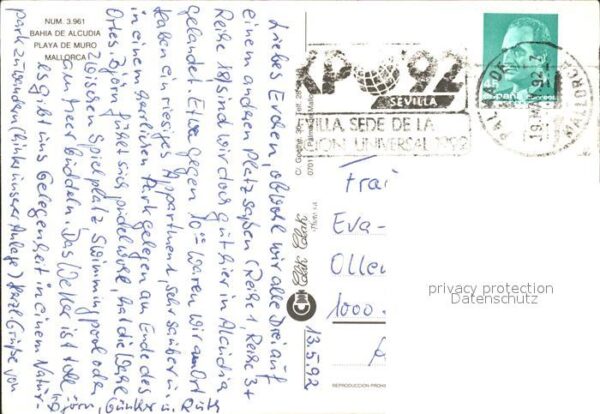 NUM. 3.961
BAHIA DE ALCUDIA
PLAYA DE MURO
MALLORCA
Liebes Erchen, obwohl wir alle Drei auf
einem anderen Platz saßen (Reihe 1, Reihe 3 +
Reihe 18) sind wir doch gut hier in Alcudia
gelandet. Etwa gegen 10 waren wir am Ort
haben ein riesiges Appartment, sehr sauber u.
in einem herrlichen Park gelegen am Ende des
Ortes. Björn fühlt sich pudelwohl, hat die Wahl
zwischen Spielplatz, Swimmingpool oder
am Meer buddeln. Das Wetter ist toll
es gibt uns Gelegenheit in einem Natur-
park zu wandern (hinter unserer Anlage) Herzl. Grüße von
Björn, Günter
u. Ruth
13.5.92
Clik Clak
REPRODUCCION PROHI
EXPO '92
SEVILLA
SEVILLA SEDE DE LA
UNIVERSAL 1992
PALMA DE
MALLORCA
Eva-
Ollen
1000
privacy protection
Datenschutz